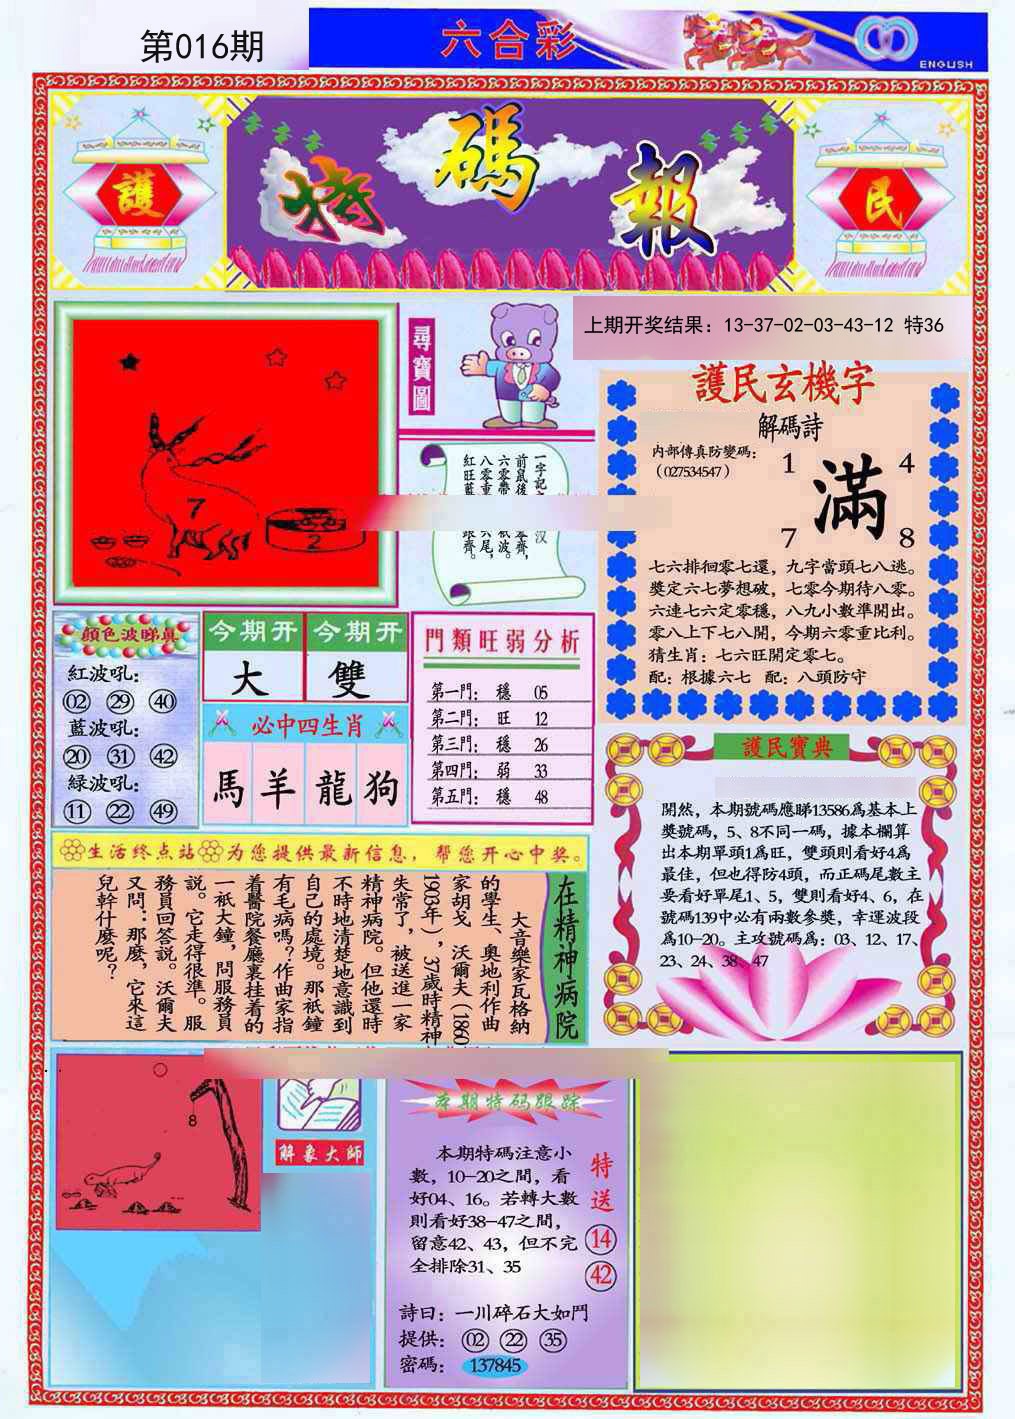 第016期
六合彩
ENGLISH
護
特碼報
民
尋寶圖
7
2
上期开奖结果：13-37-02-03-43-12 特36
護民玄機字
解碼詩
内部傳真防變碼：
（027534547）
1 4
滿
7 8
七六排徊零七還，九字當頭七八逃。
獎定六七夢想破，七零今期待八零。
六連七六定零穩，八九小數準開出。
零八上下七八開，今期六零重比利。
猜生肖：七六旺開定零七。
配：根據六七 配：八頭防守
一字記
汉
前鼠後
零齊，
六零帶
衹波。
八零重
六尾，
紅旺藍
跟齊。
顔色波睇真
紅波吼：
02 29 40
藍波吼：
20 31 42
緑波吼：
11 22 49
今期开 今期开
大 雙
必中四生肖
馬 羊 龍 狗
門類旺弱分析
第一門： 穩 05
第二門： 旺 12
第三門： 穩 26
第四門： 弱 33
第五門： 穩 48
護民寶典
開然，本期號碼應睇13586爲基本上
獎號碼，5、8不同一碼，據本欄算
出本期單頭1爲旺，雙頭則看好4爲
最佳，但也得防4頭，而正碼尾數主
要看好單尾1、5，雙則看好4、6，在
號碼139中必有兩數參獎，幸運波段
爲10-20。主攻號碼爲：03、12、17、
23、24、38、47
生活终点站 为您提供最新信息，帮您开心中奖。
在精神病院
大音樂家瓦格納
的學生、奥地利作曲
家胡戈 沃爾夫（1860
1903年），37歲時精神
失常了，被送進一家
精神病院。但他還時
不時地清楚地意識到
自己的處境。那衹鐘
有毛病嗎？作曲家指
着醫院餐廳裏挂着的
一衹大鐘，問服務員
説。它走得很準。服
務員回答説。沃爾夫
又問：那麽，它來這
兒幹什麽呢？
8
解象大師
本期特码跟踪
本期特碼注意小
數，10-20之間，看
好04、16。若轉大數
則看好38-47之間，
留意42、43，但不完
全排除31、35
特送
14
42
詩曰：一川碎石大如鬥
提供： 02 22 35
密碼： 137845